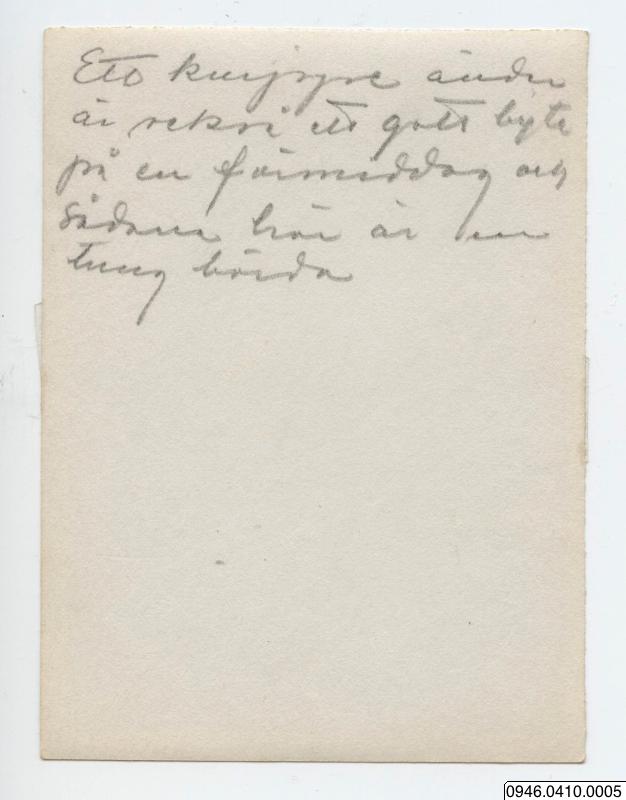 Ett knippe änder
är också ett gott byte
på en förmiddag och
sådana här är en
tung börda
0946.0410.0005